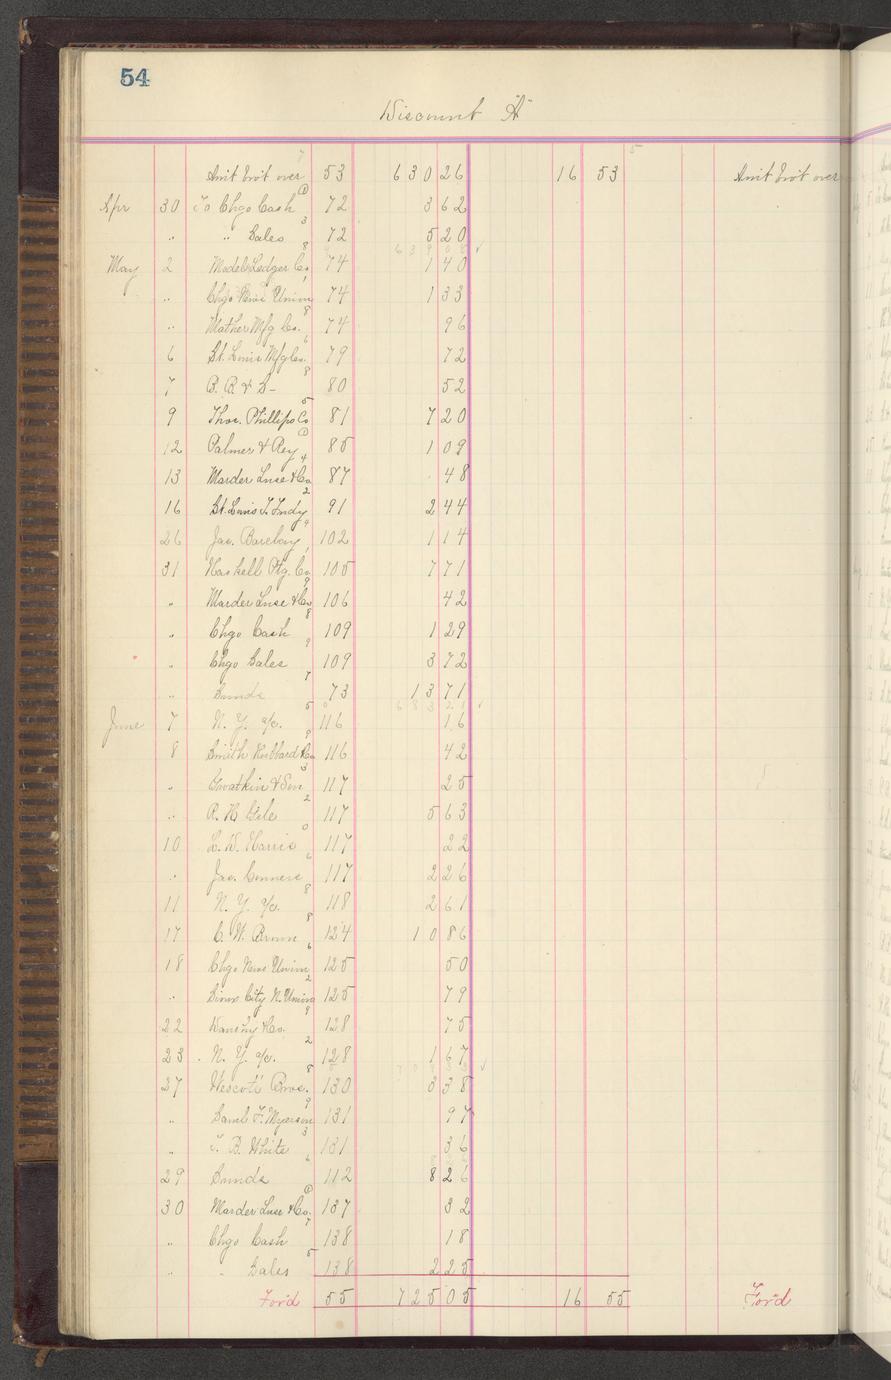 54
Discount "A"
Amt bro't over 53 630 26 16 53 Amt bro't over
Apr 30 To Chgo Cash 72 3 62
" " Sales 72 5 20
May 2 Model Ledger Co 74 1 40
" Chgo News Union 74 1 33
" Mather Mfg Co. 74 96
6 St. Louis Mfg Co. 79 72
7 B. B. & S- 80 52
9 Thos. Phillips Co 81 7 20
12 Palmer & Rey 85 1 09
13 Marder Luse & Co 87 48
16 St. Louis T. Fndy 91 2 44
26 Jas. Barclay 102 1 14
31 Haskell Ptg. Co 105 7 71
" Marder Luse & Co 106 42
" Chgo Cash 109 1 29
" Chgo Sales 109 3 72
" Sunds 73 13 71
June 7 N. Y. a/c. 116 16
8 Smith Hubbard & Co 116 42
" & Son 117 25
" R. H. 117 5 63
10 L. W. Harris 117 22
" Jas. Conners 117 2 26
11 N. Y. a/c. 118 2 61
17 C. W. Brown 124 10 86
18 Chgo News Union 125 50
" Sioux City N. Union 125 79
22 & Co. 128 75
23 N. Y. a/c. 128 1 67
27 Wescott Bros. 130 3 38
" Saml F. Myerson 131 97
" T. B. White 131 36
29 Sunds 112 8 26
30 Marder Luse & Co. 137 32
" Chgo Cash 138 18
" " Sales 138 2 25
For'd 55 725 05 16 55 For'd